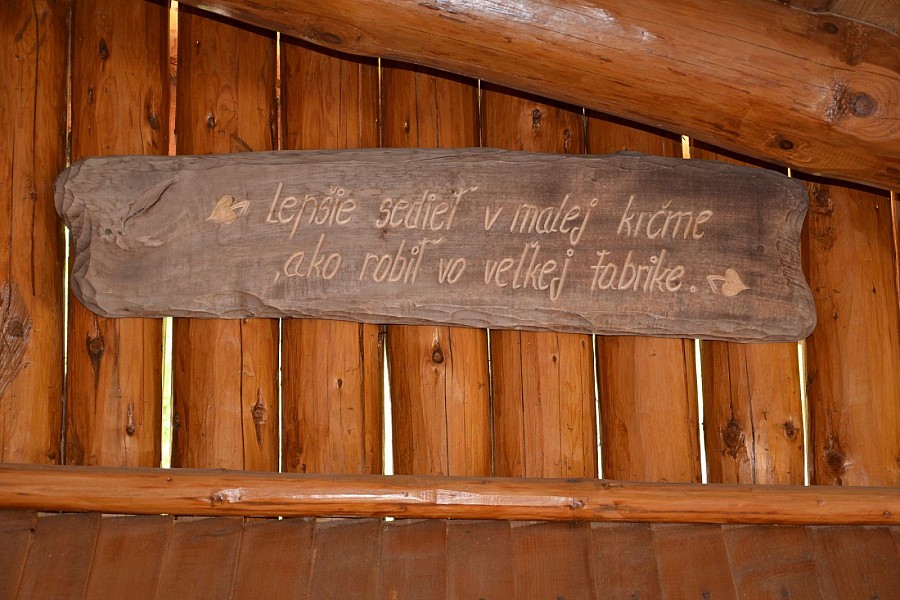 Lepšie sedieť v malej krčme
,ako robiť vo veľkej fabrike.